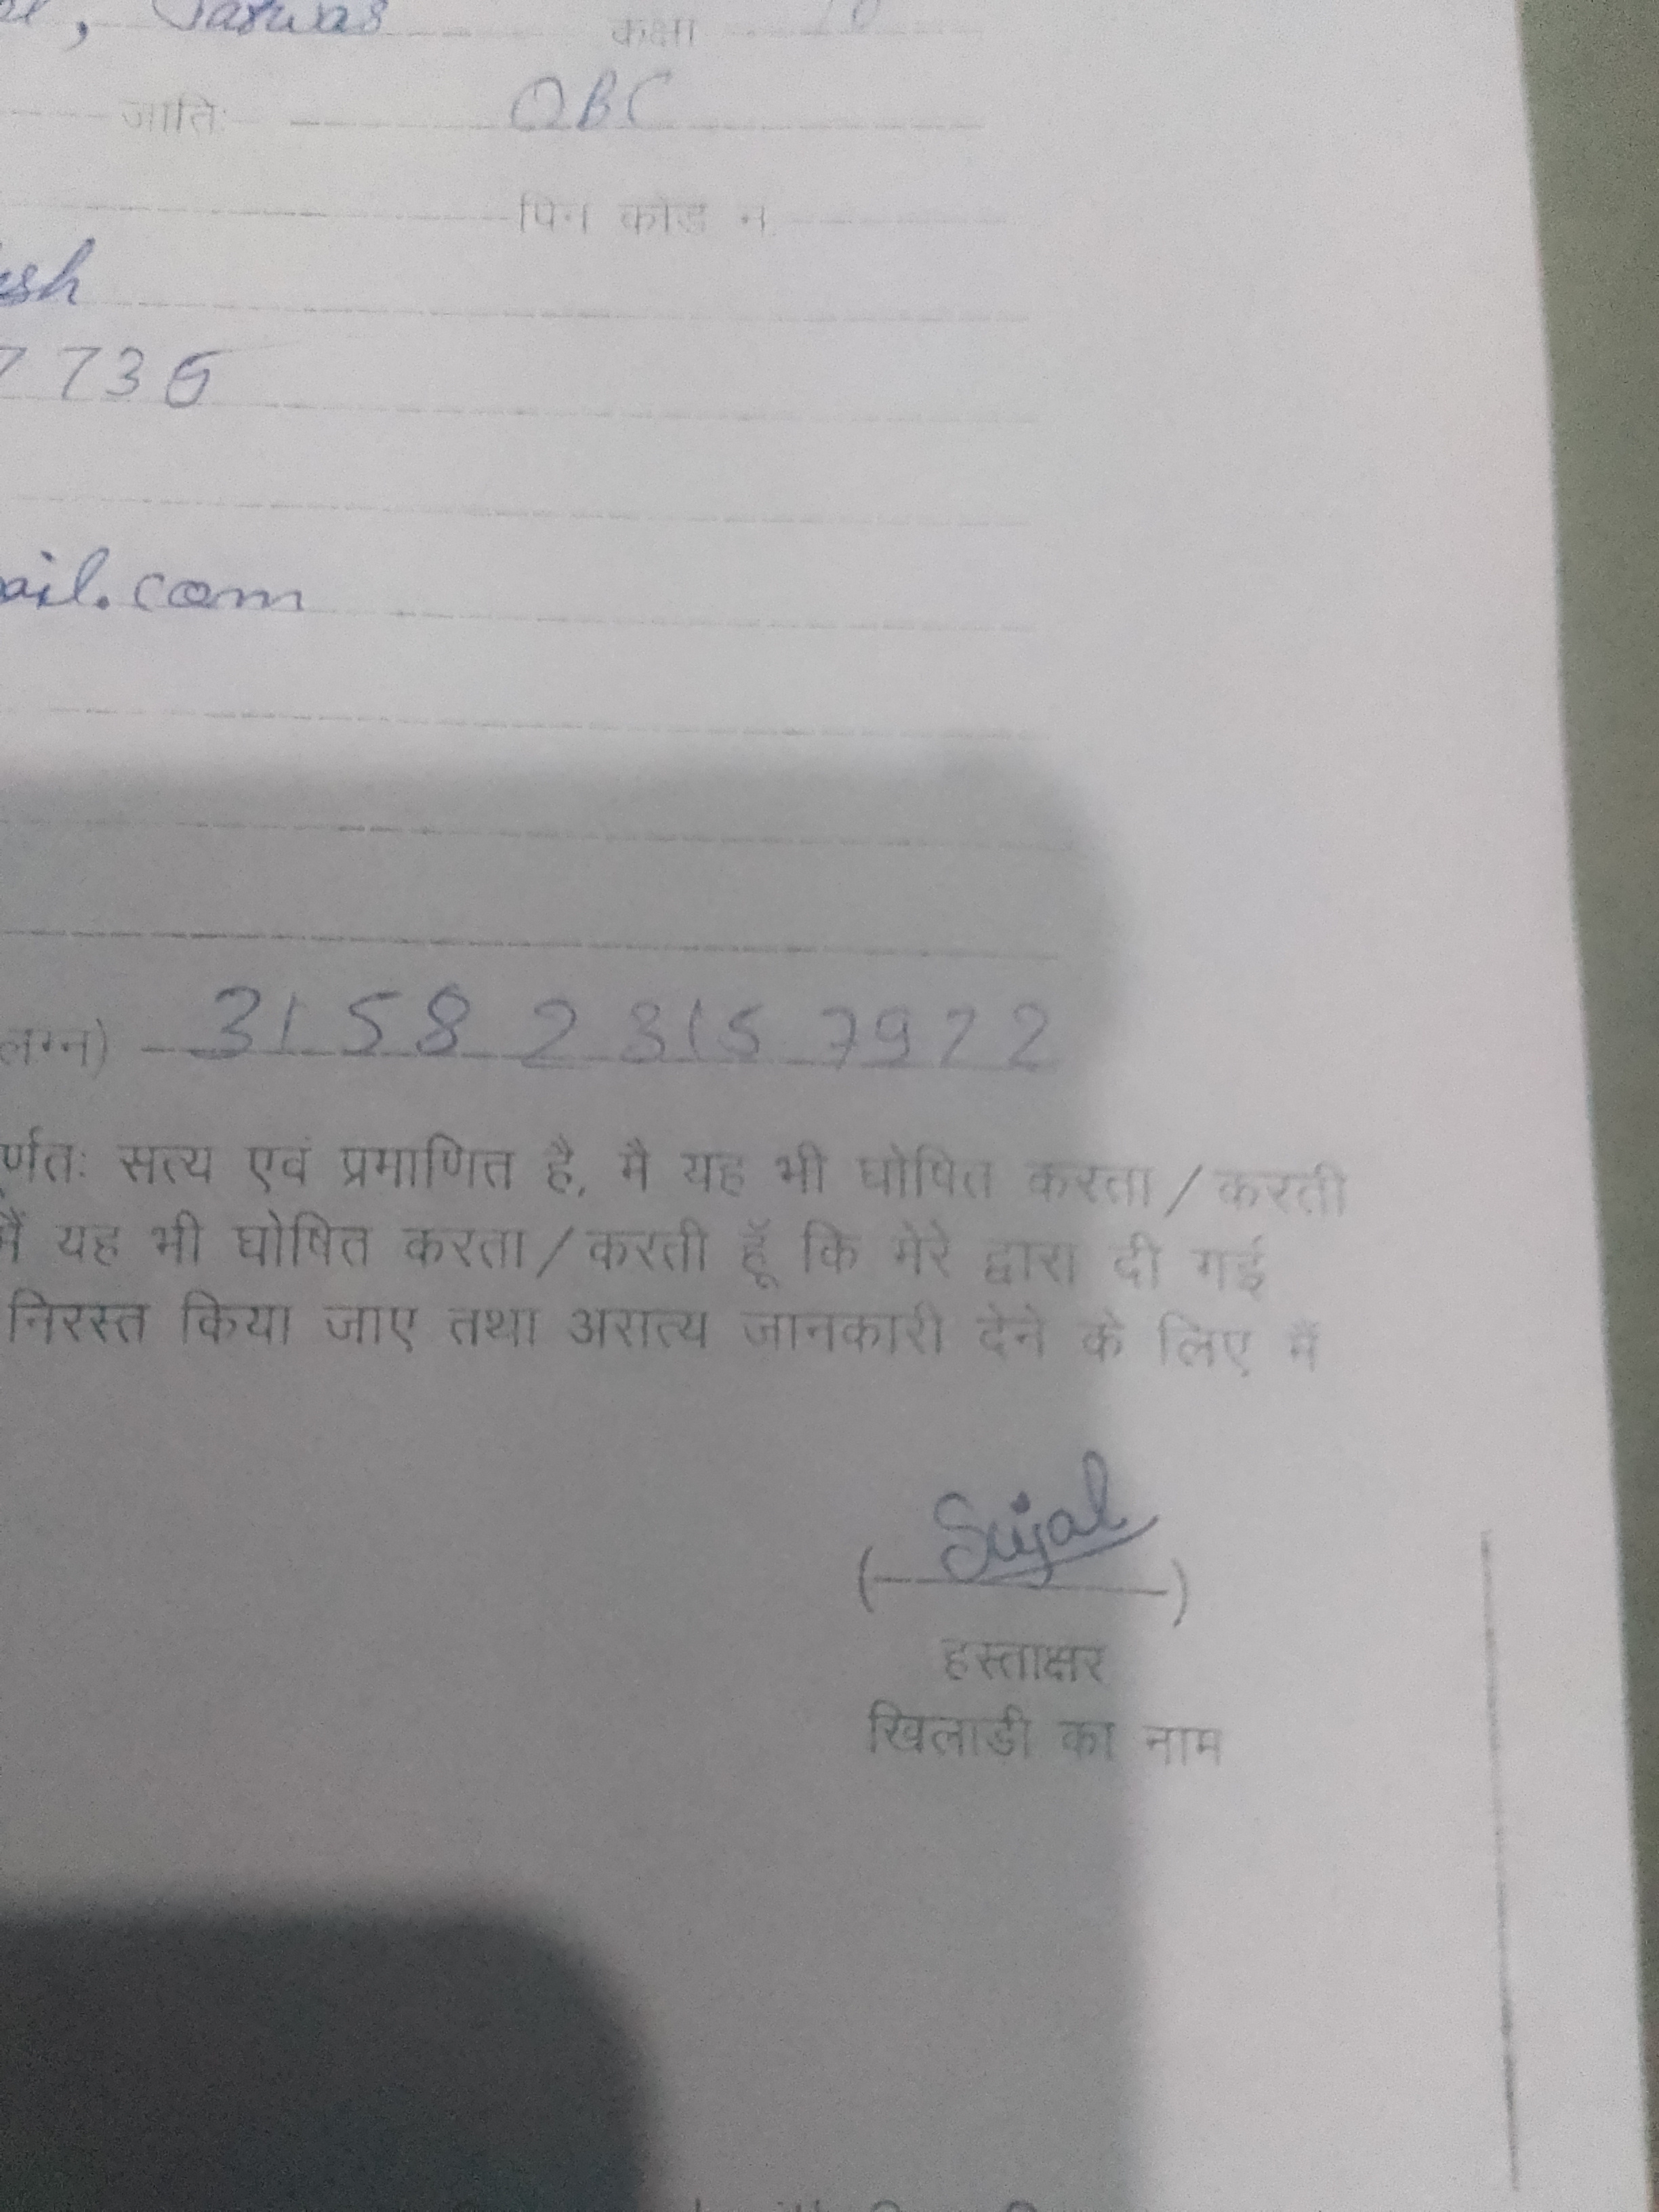 कक्षा 10
जातिः OBC
पिन कोड न.
sh
7736
ail.com
लग्न) 3158 2315 7922
र्णतः सत्य एवं प्रमाणित है, मै यह भी घोषित करता/करती
मैं यह भी घोषित करता/करती हूँ कि मेरे द्वारा दी गई
निरस्त किया जाए तथा असत्य जानकारी देने के लिए मैं
(Sujal)
हस्ताक्षर
खिलाडी का नाम